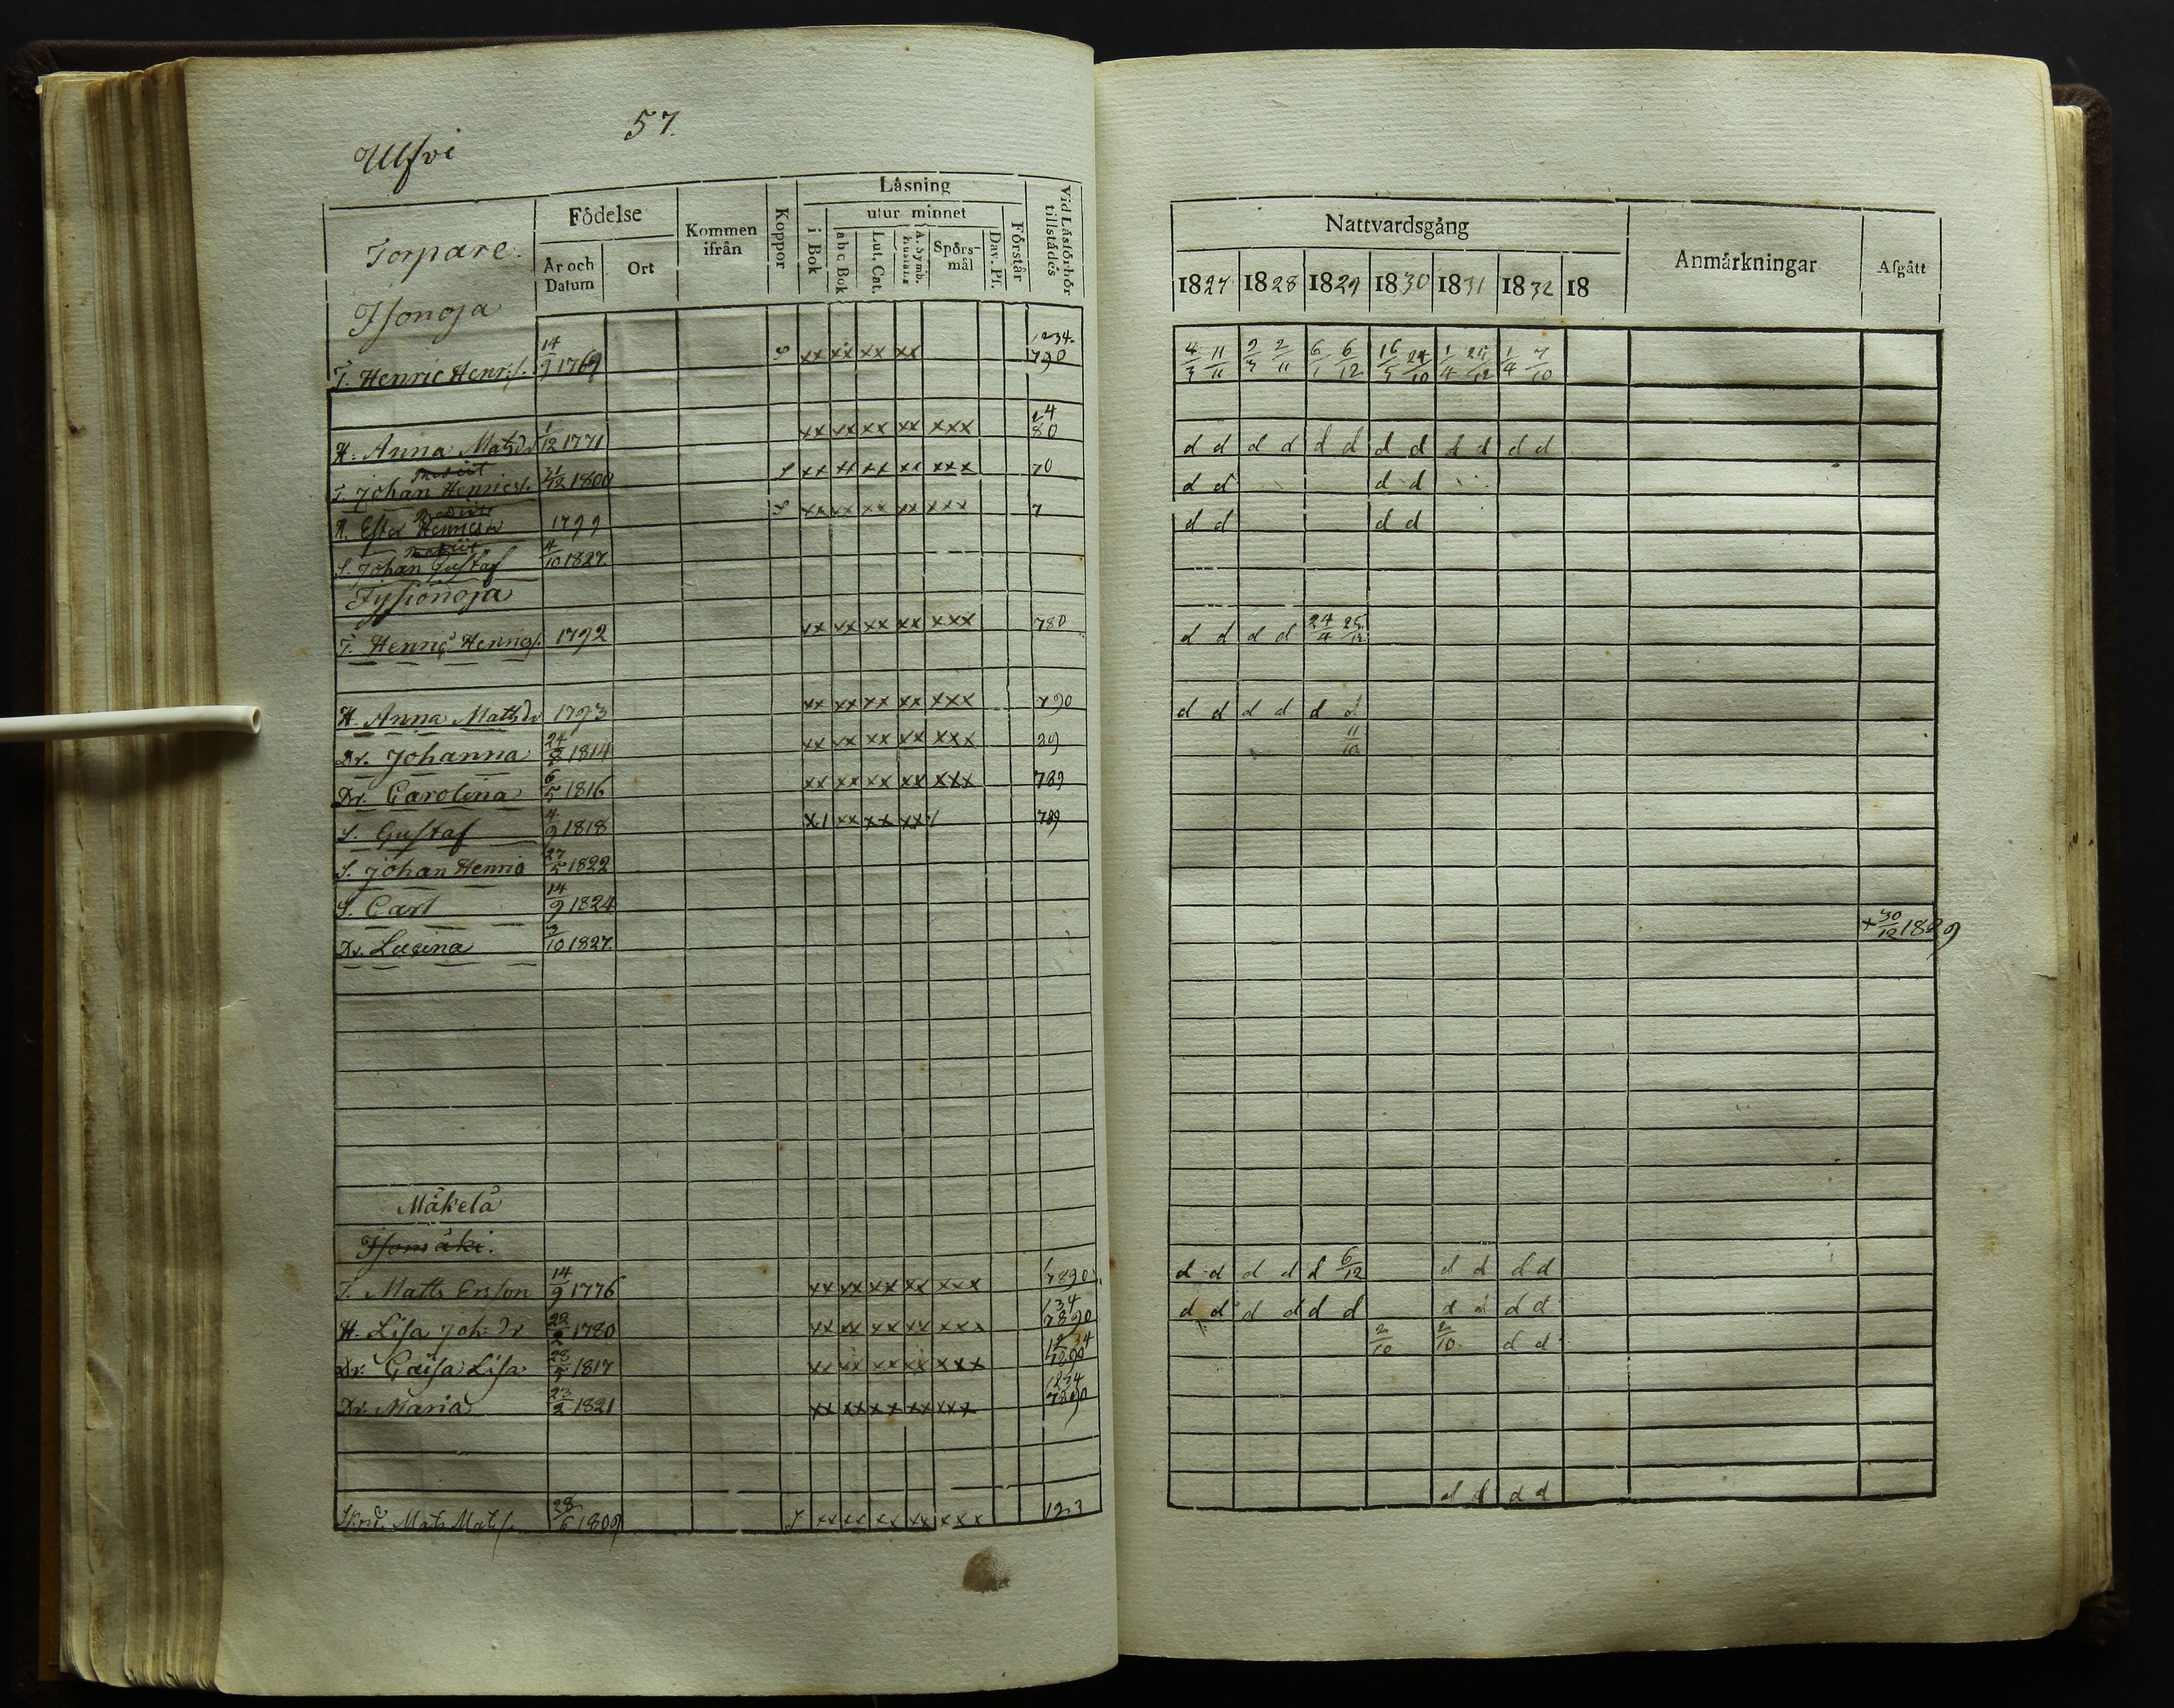 57.
Ulfvi
Torpare.
Födelse
År och Datum
Ort
Kommen ifrån
Koppor
Läsning
i Bok
utur minnet
abc Bok
Lut. Cat.
A. Symb.
Hustafla
Spörsmål
Dav. Ps.
Förstår
Vid Läsförhör tillstädes
Nattvardsgång
1827 1828 1829 1830 1831 1832 18
Anmärkningar
Afgått
Isonoja
T. Henric Henr:s. 14/9 1769 xx xx xx xx 1234. 790 4/3 11/11 2/3 2/11 6/1 6/12 16/5 24/10 1/4 1/4 7/10
H. Anna Mats dr 1/12 1771 xx xx xx xx xxx 80 d d d d d d d d d d d d
T. Johan Henrics. 1800 xx xx xx xx xxx 70 d d d d
H. Ester 1799 xx xx xx xx xxx 7 d d d d
S. Johan Gustaf 4/10 1827.
T. Henric Henrics. 1792 xx xx xx xx xxx 780 d d d d 24/4 25/12
H. Anna Mats dr 1793 xx xx xx xx xxx 790 d d d d d d
Dr. Johanna 24/8 1814 xx xx xx xx xxx 29 11/10
Dr. Carolina 6/5 1816 xx xx xx xx xxx 789
S. Gustaf 4/9 1818 x1 xx xx xx 789
S. Johan Henric 27/5 1822
S. Carl 14/9 1824
Dr. Lucina 3/10 1827. + 30/12 1829
Mäkelä
Isomäki.
T. Matts Ersson 14/9 1776 xx xx xx xx xxx 7890 d d d d d 6/12 d d d d
H. Lisa Joh: dr 22/2 1780 xx xx xx xx xxx 134 7890 d d d d d d d d d d
Dr. Caisa Lisa 28/5 1817 xx xx xx xx xxx 1234 7890 2/10 2/10 d d
Dr. Maria 23/2 1821 xx xx xx xx xxx 1234 7890
Mats Mats. 28/6 1809 xx xx xx xx xxx 123 d d d d